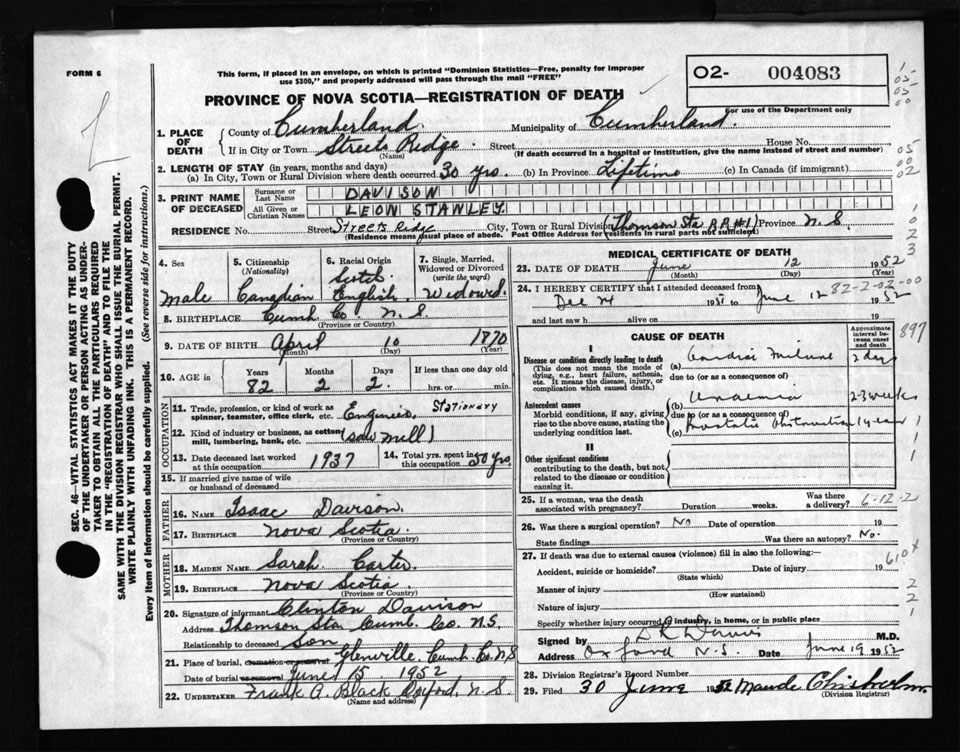 FORM 6
This form, if placed in an envelope, on which is printed "Dominion Statistics—Free, penalty for improper
use $300," and properly addressed will pass through the mail "FREE"
O2- 004083
For use of the Department only
PROVINCE OF NOVA SCOTIA—REGISTRATION OF DEATH
1. PLACE OF DEATH
County of Cumberland. Municipality of Cumberland.
If in City or Town Streets Ridge. (Name) Street House No.
(If death occurred in a hospital or institution, give the name instead of street and number)
2. LENGTH OF STAY (in years, months and days)
(a) In City, Town or Rural Division where death occurred 30 yrs. (b) In Province Lifetime (c) In Canada (if immigrant)
3. PRINT NAME OF DECEASED
Surname or Last Name DAVISON
All Given or Christian Names LEON STANLEY
RESIDENCE No. Street Streets Ridge City, Town or Rural Division (Thomson Sta RR#1) Province N.S.
(Residence means usual place of abode. Post Office Address for residents in rural parts not sufficient)
4. Sex
male
5. Citizenship (Nationality)
Canadian
6. Racial Origin
Scotch
English
7. Single, Married, Widowed or Divorced (write the word)
Widowed
8. BIRTHPLACE Cumb. Co. N.S.
(Province or Country)
9. DATE OF BIRTH April 10 1870
(Month) (Day) (Year)
10. AGE in Years Months Days If less than one day old
82 2 2 hrs. or min.
OCCUPATION
11. Trade, profession, or kind of work as spinner, teamster, office clerk, etc. Engineer, Stationary
12. Kind of industry or business, as cotton mill, lumbering, bank, etc. (saw mill)
13. Date deceased last worked at this occupation 1937
14. Total yrs. spent in this occupation 50 yrs.
15. If married give name of wife or husband of deceased
FATHER
16. NAME Isaac Davison
17. BIRTHPLACE Nova Scotia.
(Province or Country)
MOTHER
18. MAIDEN NAME Sarah Carter
19. BIRTHPLACE Nova Scotia.
(Province or Country)
20. Signature of informant Clinton Davison
Address Thomson Sta. Cumb. Co. N.S.
Relationship to deceased Son
21. Place of burial, cremation or removal Glenville, Cumb. Co. N.S
Date of burial or removal June 15 1952
22. UNDERTAKER Frank A. Black Oxford, N.S.
(Name and address)
MEDICAL CERTIFICATE OF DEATH
23. DATE OF DEATH June 12 1952
(Month) (Day) (Year)
24. I HEREBY CERTIFY that I attended deceased from
Dec 24 1951 to June 12 1952
82-2-02-00
and last saw h alive on 19
897
CAUSE OF DEATH
Approximate interval between onset and death
I
Disease or condition directly leading to death
(This does not mean the mode of dying, e.g., heart failure, asthenia, etc. It means the disease, injury, or complication which caused death.)
(a) Cardiac Failure 2 days
due to (or as a consequence of)
Antecedent causes
Morbid conditions, if any, giving rise to the above cause, stating the underlying condition last.
(b) Uraemia 2-3 weeks
due to (or as a consequence of)
(c) Prostatic Obstruction 1 year
II
Other significant conditions
contributing to the death, but not related to the disease or condition causing it.
25. If a woman, was the death associated with pregnancy? Duration weeks. Was there a delivery?
6-12-2
26. Was there a surgical operation? No Date of operation 19
State findings Was there an autopsy? No.
27. If death was due to external causes (violence) fill in also the following:—
Accident, suicide or homicide? Date of injury 19
(State which)
610 x
Manner of injury
(How sustained)
Nature of injury
Specify whether injury occurred in industry, in home, or in public place
Signed by M.D.
Address Oxford N.S. Date June 19 1952
28. Division Registrar's Record Number
29. Filed 30 June 1952 Maude Chisholm
(Division Registrar)
SEC. 46—VITAL STATISTICS ACT MAKES IT THE DUTY
OF THE UNDERTAKER OR PERSON ACTING AS UNDERTAKER
TO OBTAIN ALL THE PARTICULARS REQUIRED
IN THE "REGISTRATION OF DEATH" AND TO FILE THE
SAME WITH THE DIVISION REGISTRAR WHO SHALL ISSUE THE BURIAL PERMIT.
WRITE PLAINLY WITH UNFADING INK. THIS IS A PERMANENT RECORD.
Every item of information should be carefully supplied. (See reverse side for instructions.)